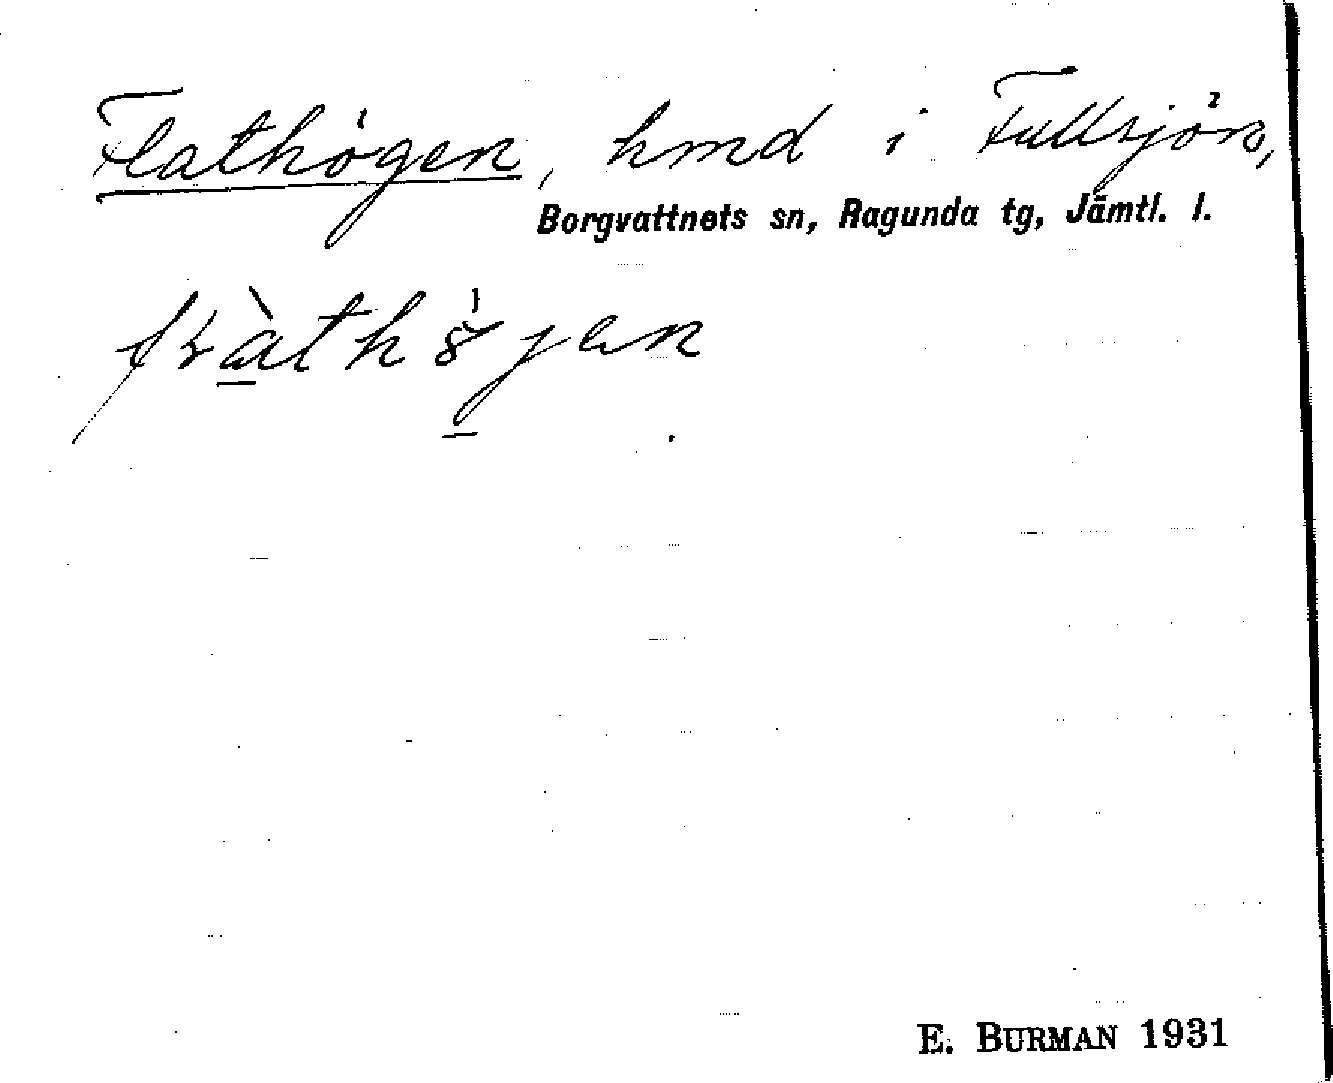 Flathögen, hmd i Fullsjön,
Borgvattnets sn, Ragunda tg, Jämtl. l.
E. BURMAN 1931